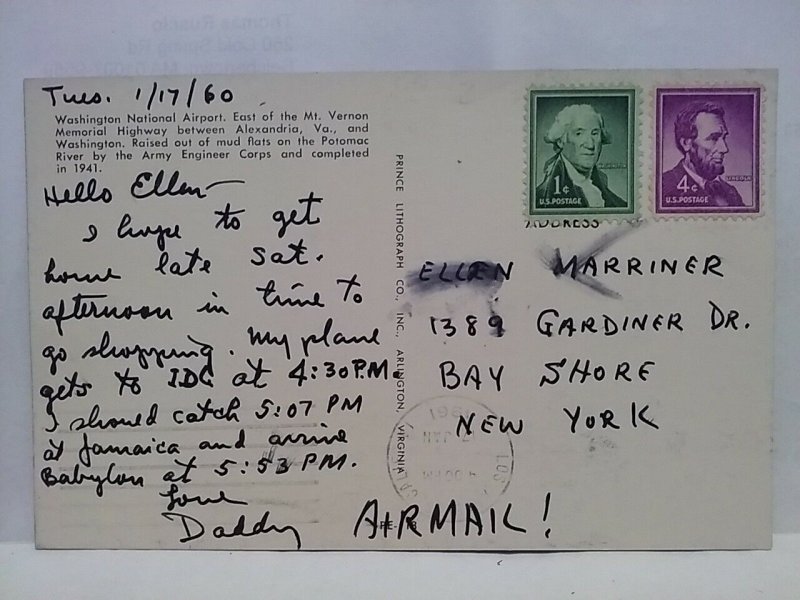 Tues. 1/17/60
Washington National Airport. East of the Mt. Vernon
Memorial Highway between Alexandria, Va., and
Washington. Raised out of mud flats on the Potomac
River by the Army Engineer Corps and completed
in 1941.
Hello Ellen—
I hope to get
home late Sat.
afternoon in time to
go shopping. My plane
gets to IDL at 4:30 P.M.
I should catch 5:07 PM
at Jamaica and arrive
Babylon at 5:53 PM.
Love
Daddy
PRINCE LITHOGRAPH CO., INC., ARLINGTON, VIRGINIA
1¢
WASHINGTON
U.S. POSTAGE
4¢
LINCOLN
U.S. POSTAGE
ADDRESS
ELLEN MARRINER
1389 GARDINER DR.
BAY SHORE
NEW YORK
AIRMAIL!
1961
JAN